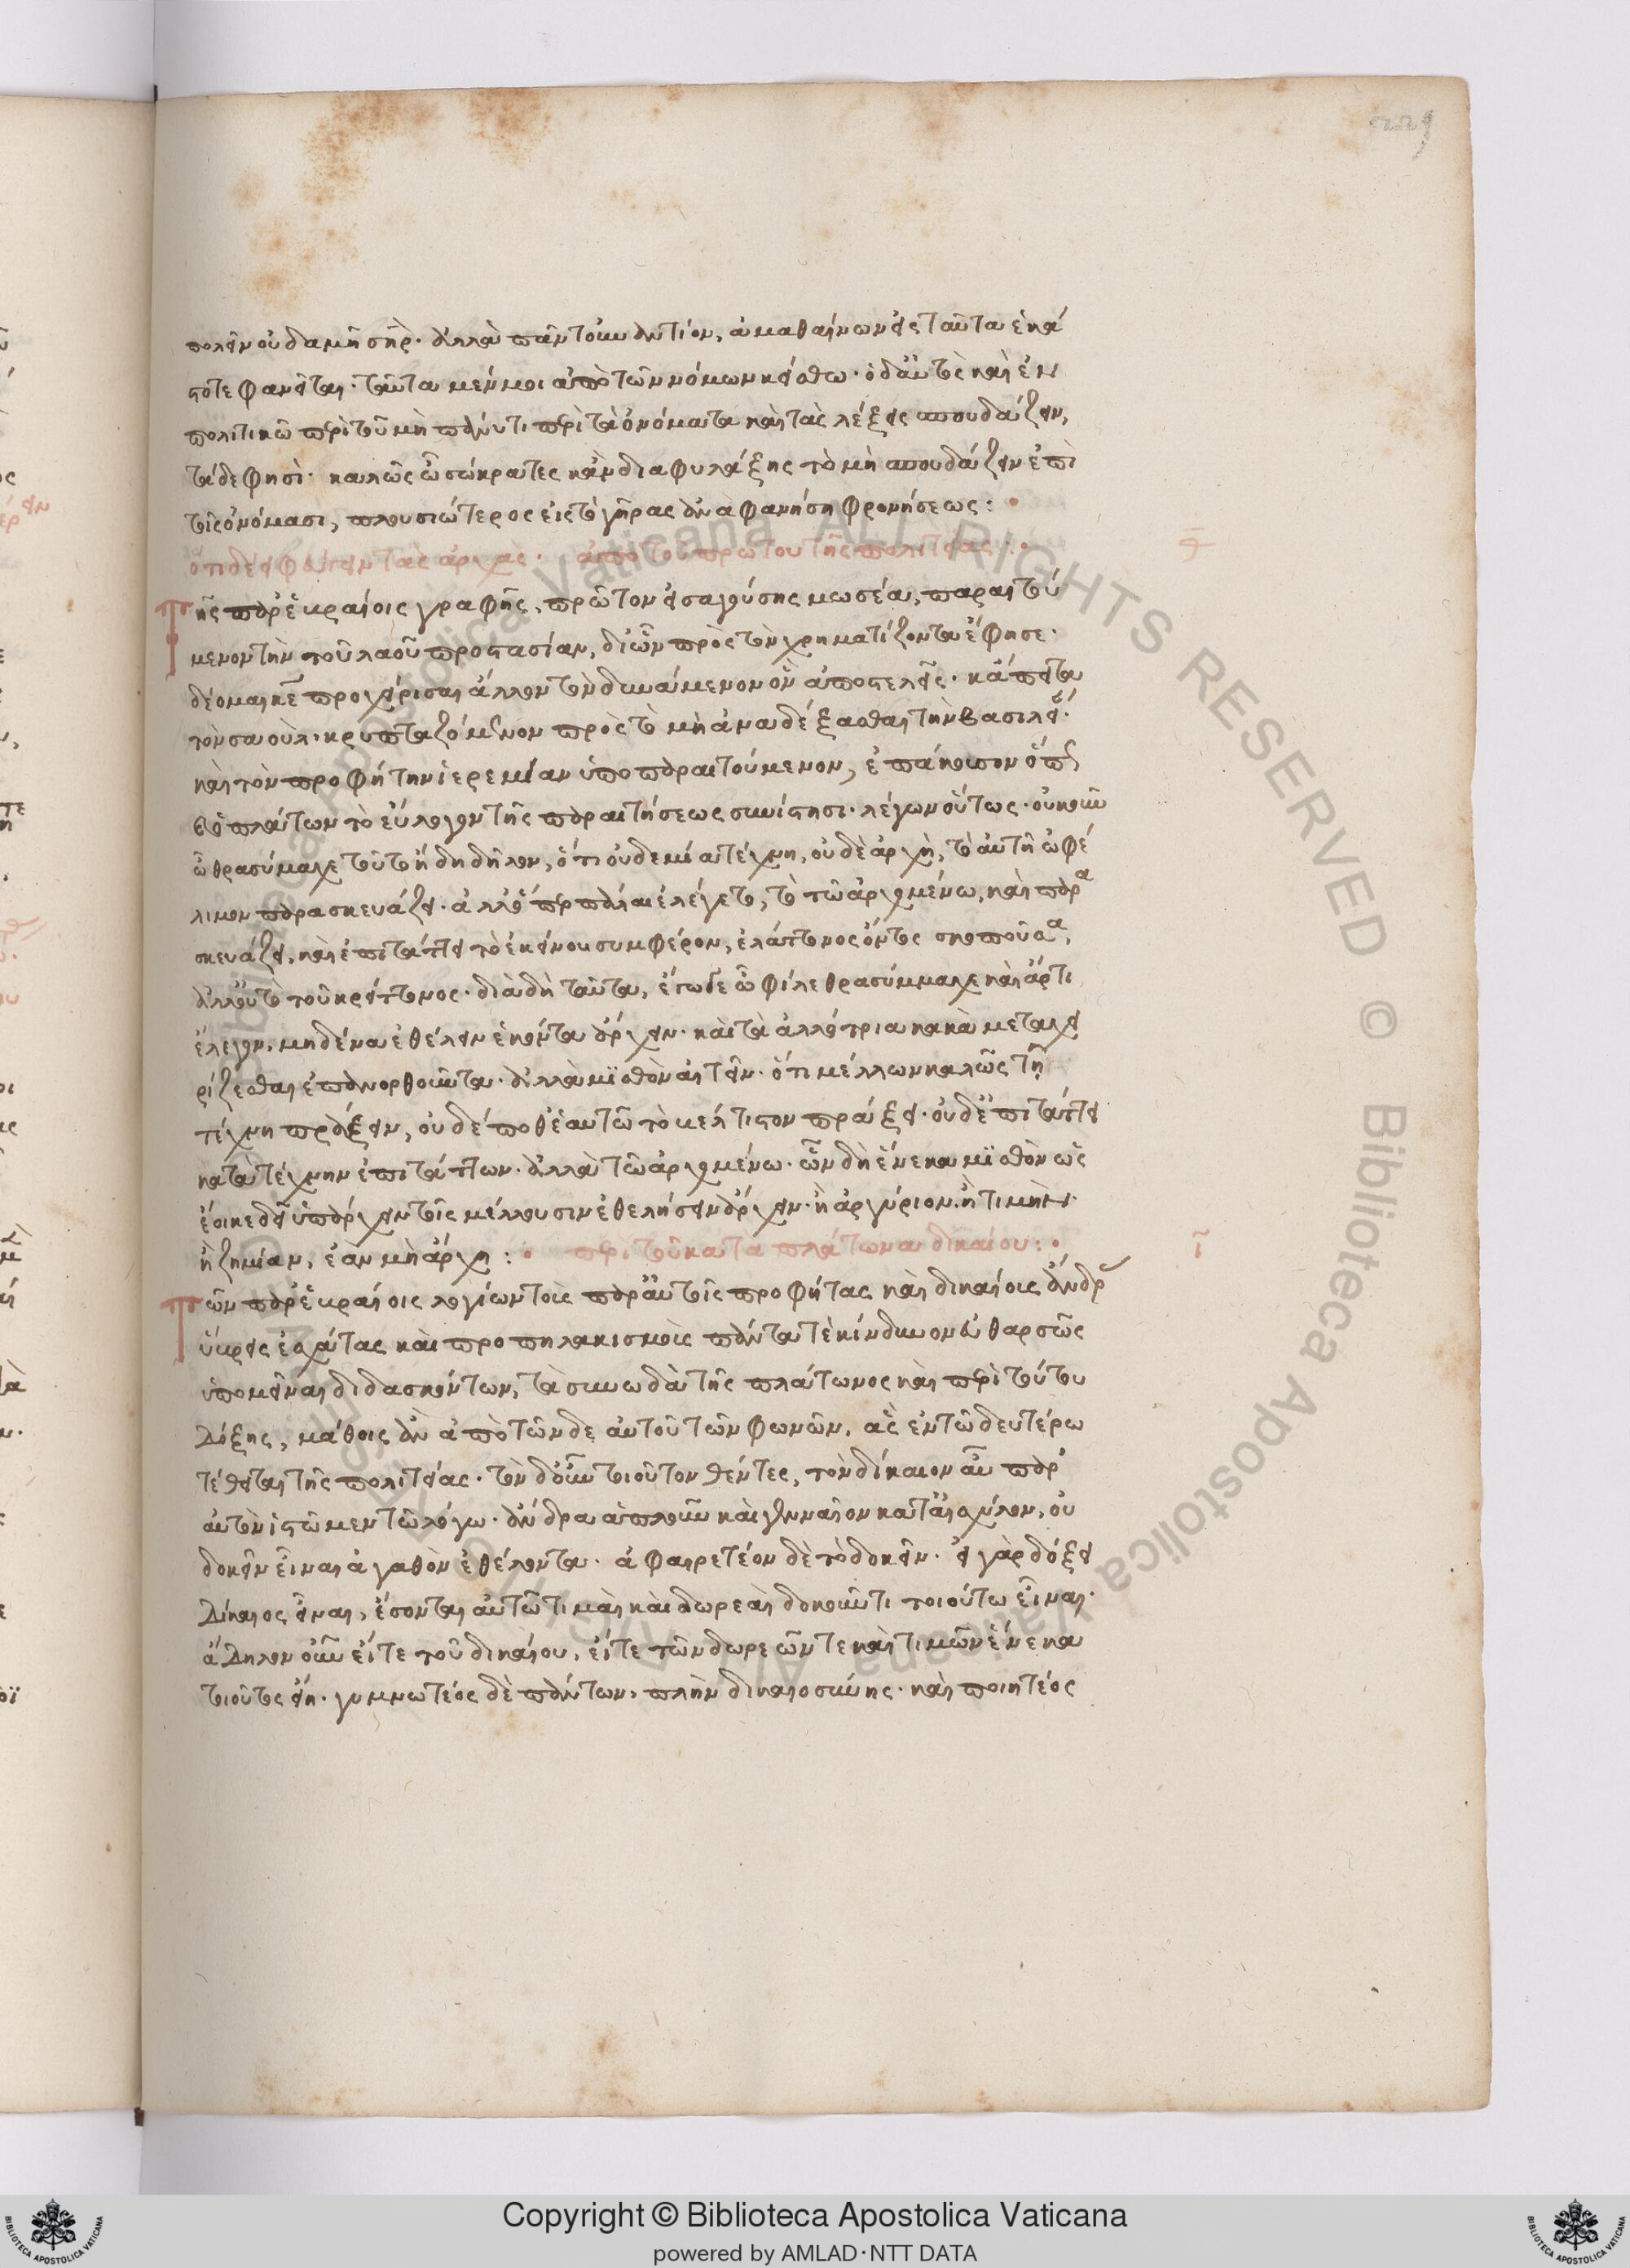 229
πολεῖν οὐδαμῆ σπέρ· ἀλλὰ πᾶν τοὐναντίον, ἀμαθαίνων εἰς ταῦτα ἑκά
στοτε φανεῖται· ταῦτα μέν μοι ἀπὸ τῶν νόμων κείσθω· ὁ δ' αὐτὸς καὶ ἐν
πολιτικῶ περὶ τοῦ μὴ πάνυ τι περὶ τὰ ὀνόματα καὶ τὰς λέξεις σπουδάζειν,
τάδε φησί· καλῶς ὦ σώκρατες κἂν διαφυλάξης τὸ μὴ σπουδάζειν ἐπὶ
τοῖς ὀνόμασι, πλουσιώτερος εἰς τὸ γῆρας ἀναφανήση φρονήσεως:
ὅτι δεῖ φεύγειν τὰς ἀρχάς· ἀπὸ τοῦ πρώτου τῆς πολιτείας:
Τῆς παρ' ἑβραίοις γραφῆς, πρῶτον εἰσαγούσης μωσέα, παραιτού
μενον τὴν τοῦ λαοῦ προστασίαν, δι' ὧν πρὸς τὸν χρηματίζοντα ἔφησε·
δέομαι κε προχείρισαι ἄλλον τὸν δυνάμενον ὃν ἀποστελεῖς· κἄπειτα
τὸν σαοὺλ κρυπταζόμενον πρὸς τὸ μὴ ἀναδέξασθαι τὴν βασιλεί
καὶ τὸν προφήτην ἱερεμίαν ὑποπαραιτούμενον, ἐπάκουσον ὅπως
ὁ πλάτων τὸ εὔλογον τῆς παραιτήσεως συνίστησι· λέγων οὕτως· οὐκοῦν
ὦ θρασύμαχε τοῦτο ἤδη δῆλον, ὅτι οὐδεμία τέχνη, οὐδὲ ἀρχὴ, τὸ αὑτῆ ὠφέ
λιμον παρασκευάζει· ἀλλ' ὅπερ πάλαι ἐλέγετο, τὸ τῶ ἀρχομένω, καὶ παρα
σκευάζει, καὶ ἐπιτάττει τὸ ἐκείνου συμφέρον, ἐλάττονος ὄντος σκοποῦσα,
ἀλλ' οὐ τὸ τοῦ κρείττονος· διὰ δὴ ταῦτα, ἔγωγε ὦ φίλε θρασύμμαχε καὶ ἄρτι
ἔλεγον, μηδένα ἐθέλειν ἑκόντα ἄρχειν· καὶ τὰ ἀλλότρια κακὰ μεταχει
ρίζεσθαι ἐπανορθοῦντα· ἀλλὰ μισθὸν αἰτεῖν· ὅτι μέλλων καλῶς τῆ
τέχνη πράξειν, οὐδέποθ' ἑαυτῶ τὸ βέλτιστον πράξει· οὐδ' ἐπιτάττει
κατὰ τέχνην ἐπιτάττων· ἀλλὰ τῶ ἀρχομένω· ὧν δὴ ἕνεκα μισθὸν ὡς
ἔοικε δεῖ ὑπάρχειν τοῖς μέλλουσιν ἐθελήσειν ἄρχειν· ἢ ἀργύριον. ἢ τιμὴν·
ἢ ζημίαν, ἐὰν μὴ ἄρχη: περὶ τοῦ κατὰ πλάτωνα δικαίου:
Τῶν παρ' ἑβραίοις λογίων τοῖς παρ' αὐτοῖς προφήτας καὶ δικαίοις ἄνδρας
ὕβρεις ἐσχάτας καὶ προπηλακισμοὺς πάντα τὲ κίνδυνον εὐθαρσῶς
ὑπομεῖναι διδασκόντων, τὰ συνωδὰ τῆς πλάτωνος καὶ περὶ τούτου
δόξης, μάθοις ἂν ἀπὸ τῶνδε αὐτοῦ τῶν φωνῶν, ἃς ἐν τῶ δευτέρω
τέθειται τῆς πολιτείας· τὸν δ' οὖν τοιοῦτον θέντες, τὸν δίκαιον αὖ παρ'
αὐτὸν ἱστῶμεν τῶ λόγω· ἄνδρα ἁπλοῦν καὶ γενναῖον κατ' αἰσχύλον, οὐ
δοκεῖν εἶναι ἀγαθὸν ἐθέλοντα· ἀφαιρετέον δὲ τὸ δοκεῖν· εἰ γὰρ δόξει
δίκαιος εἶναι, ἔσονται αὐτῶ τιμαὶ καὶ δωρεαὶ δοκοῦντι τοιούτω εἶναι·
ἄδηλον οὖν εἴτε τοῦ δικαίου, εἴτε τῶν δωρεῶν τε καὶ τιμῶν ἕνεκα
τοιοῦτος εἴη· γυμνωτέος δὲ πάντων, πλὴν δικαιοσύνης· καὶ ποιητέος
Copyright © Biblioteca Apostolica Vaticana
powered by AMLAD·NTT DATA